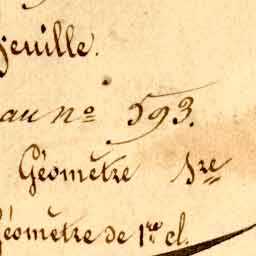 jeuille.
au nº 593.
Géomètre
Géomètre de 1re cl.